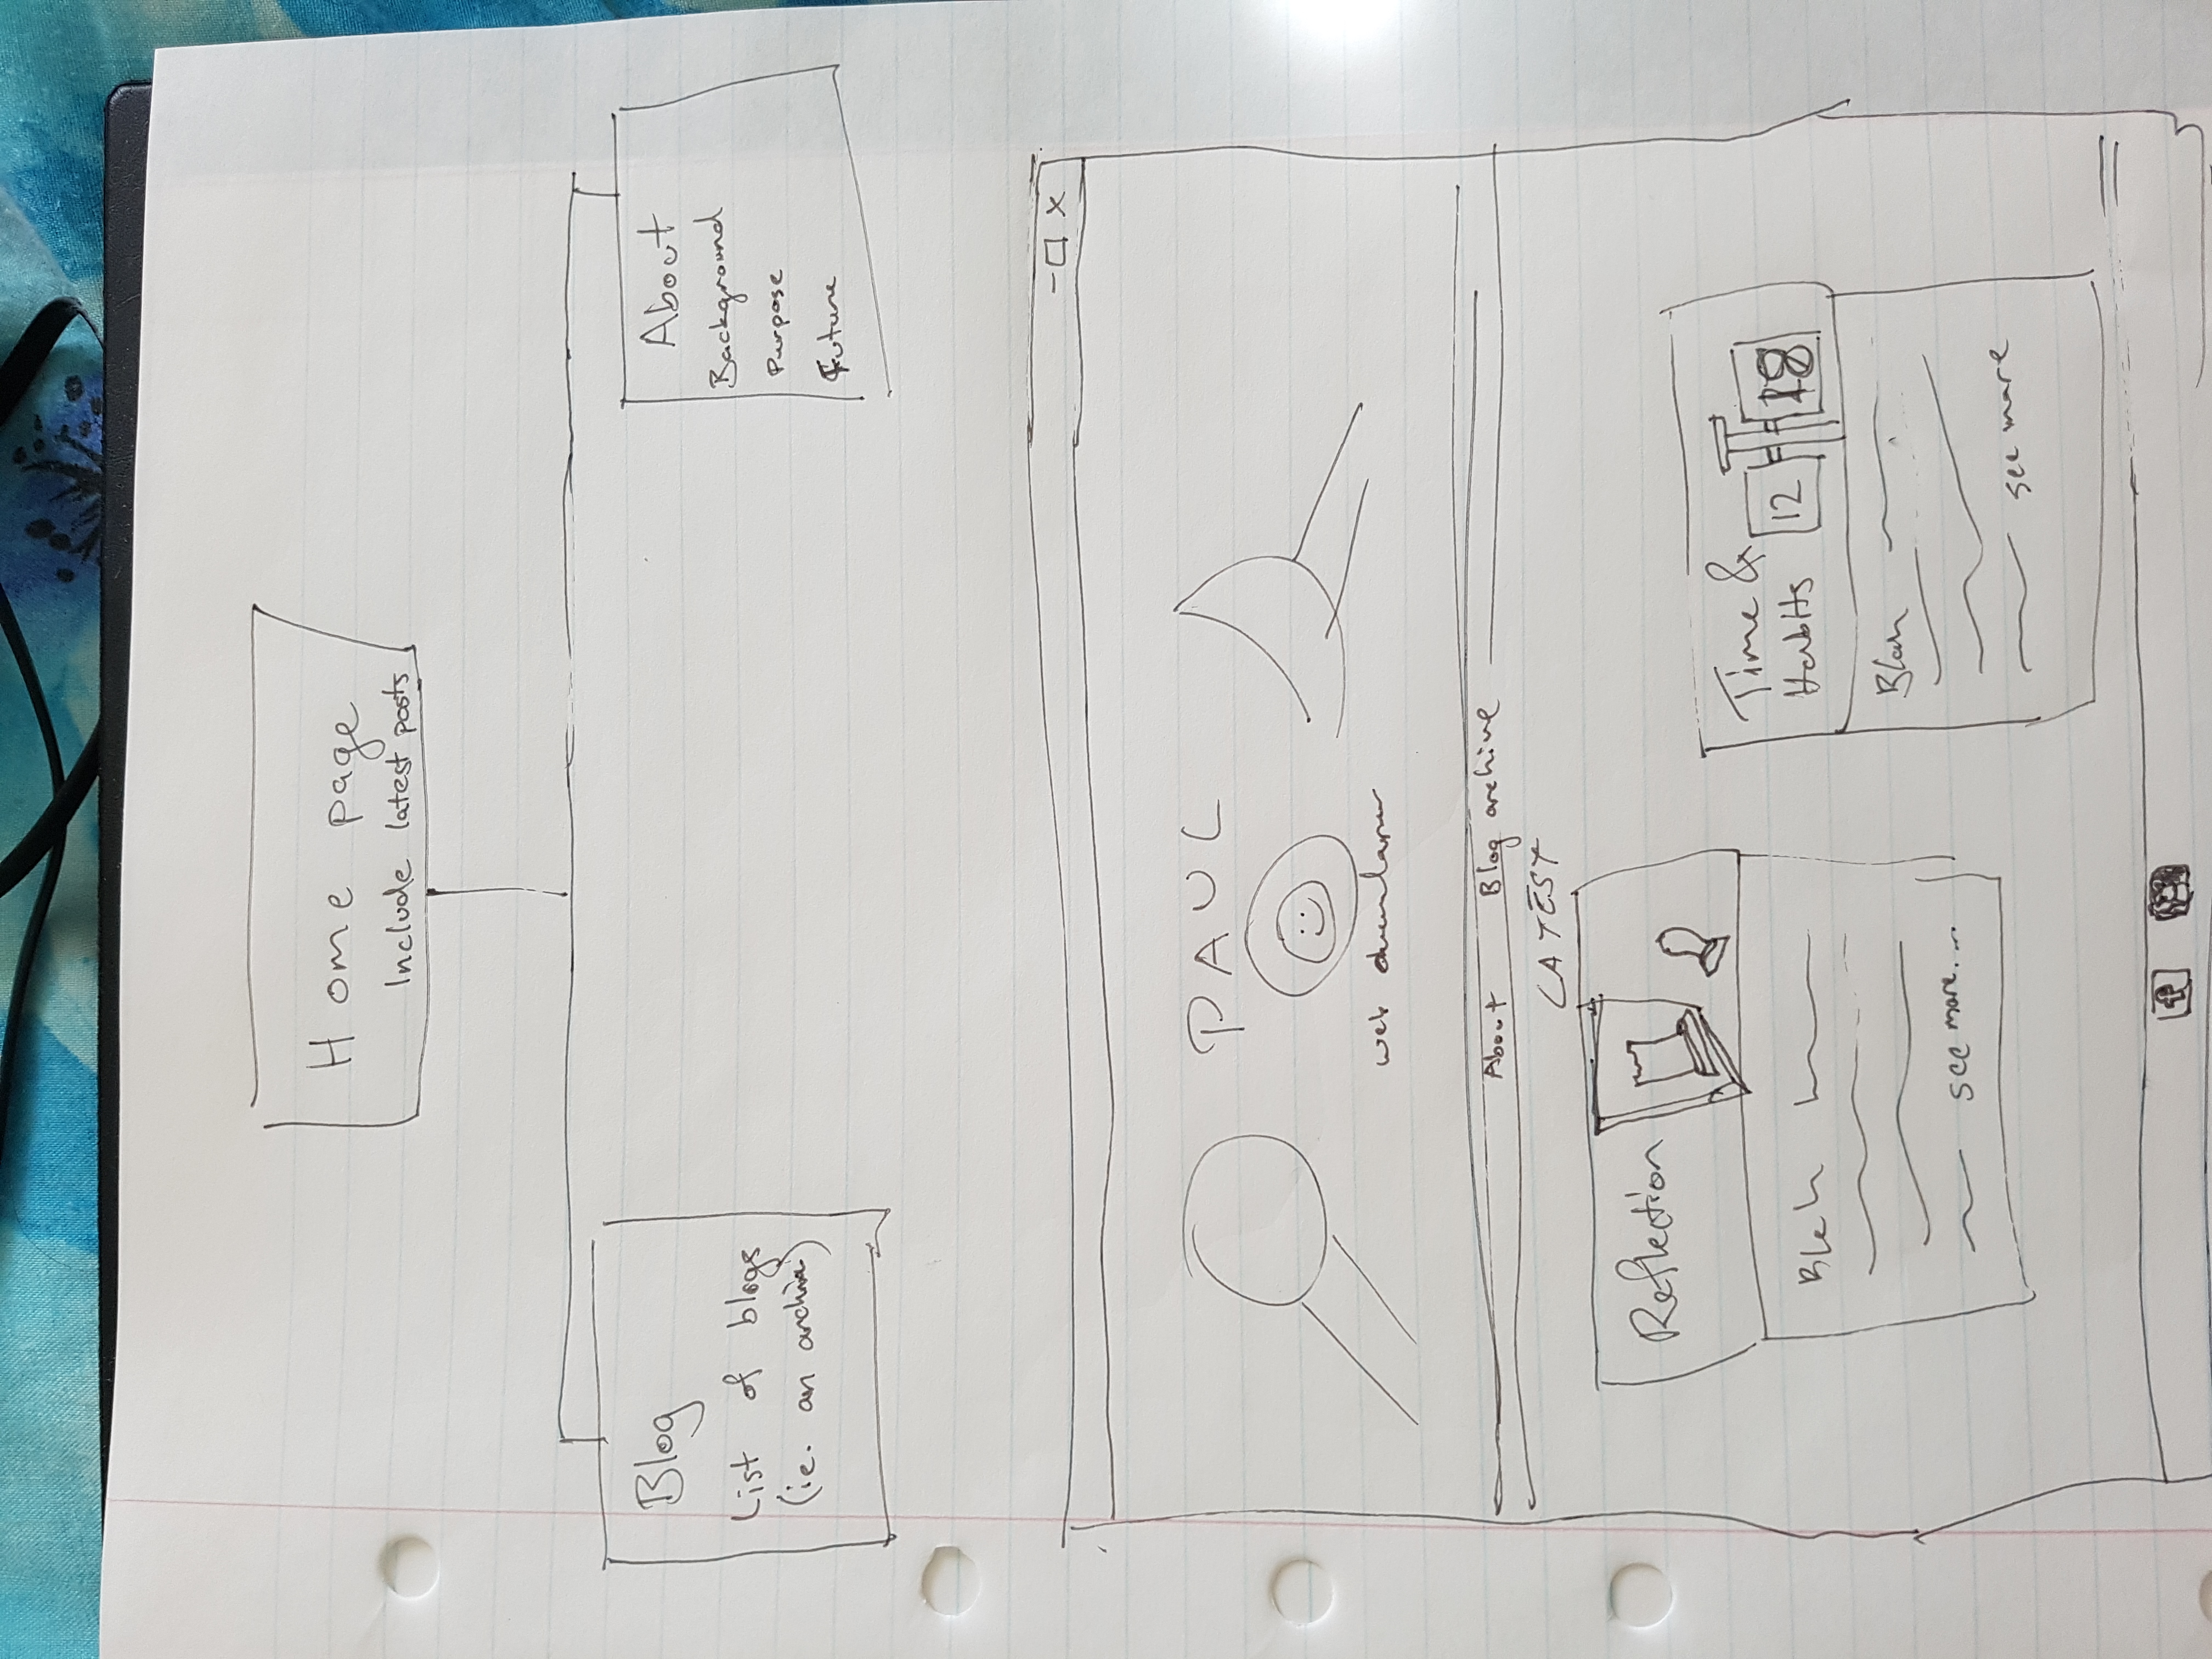 Home page
Include latest posts
Blog
List of blogs
(ie. an archive)
About
Background
Purpose
Future
- □ x
PAUL
web developer
About Blog archive
LATEST
Reflection
Blah
see more...
Time &
Habits
12
18
Blah
see more
f